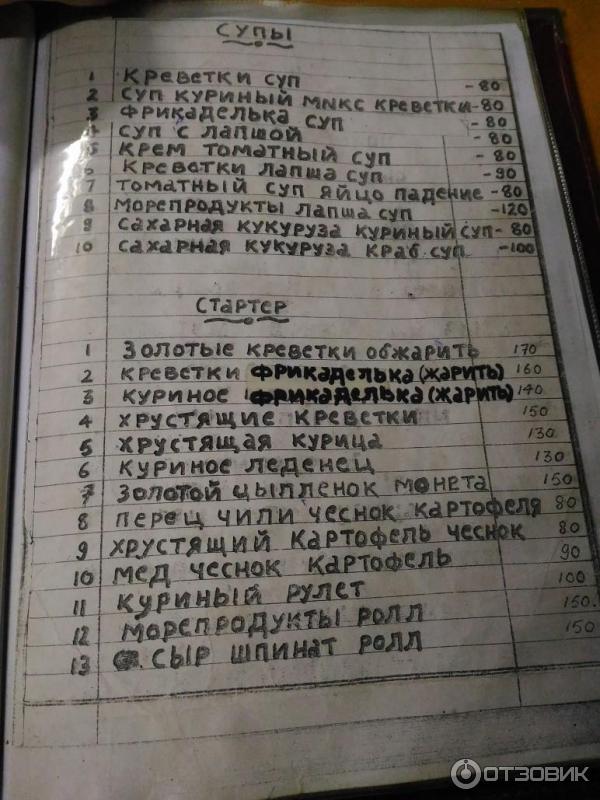 СУПЫ
1 КРЕВЕТКИ СУП -80
2 СУП КУРИНЫЙ МИКС КРЕВЕТКИ-80
3 ФРИКАДЕЛЬКА СУП -80
4 СУП С ЛАПШОЙ -80
5 КРЕМ ТОМАТНЫЙ СУП -80
6 КРЕВЕТКИ ЛАПША СУП -90
7 ТОМАТНЫЙ СУП ЯЙЦО ПАДЕНИЕ -80
8 МОРЕПРОДУКТЫ ЛАПША СУП -120
9 САХАРНАЯ КУКУРУЗА КУРИНЫЙ СУП-80
10 САХАРНАЯ КУКУРУЗА КРАБ СУП -100
СТАРТЕР
1 ЗОЛОТЫЕ КРЕВЕТКИ ОБЖАРИТЬ 170
2 КРЕВЕТКИ ФРИКАДЕЛЬКА (ЖАРИТЬ) 160
3 КУРИНОЕ ФРИКАДЕЛЬКА (ЖАРИТЬ) 140
4 ХРУСТЯЩИЕ КРЕВЕТКИ 150
5 ХРУСТЯЩАЯ КУРИЦА 130
6 КУРИНОЕ ЛЕДЕНЕЦ 130
7 ЗОЛОТОЙ ЦЫПЛЕНОК МОНЕТА 150
8 ПЕРЕЦ ЧИЛИ ЧЕСНОК КАРТОФЕЛЯ 80
9 ХРУСТЯЩИЙ КАРТОФЕЛЬ ЧЕСНОК 80
10 МЕД ЧЕСНОК КАРТОФЕЛЬ 90
11 КУРИНЫЙ РУЛЕТ 100
12 МОРЕПРОДУКТЫ РОЛЛ 150.
13 СЫР ШПИНАТ РОЛЛ 150
ОТЗОВИК